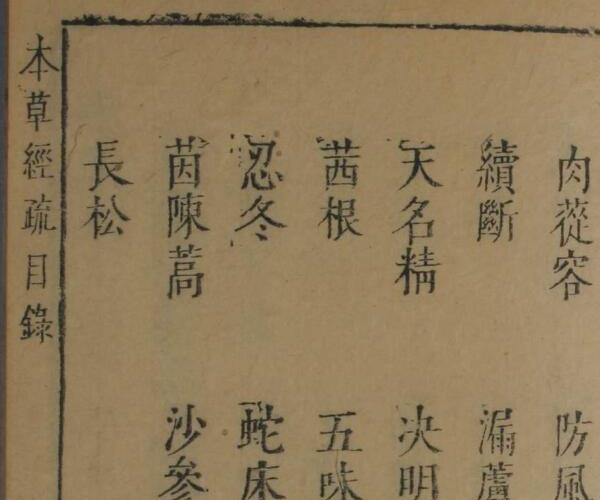 肉蓯容 防風
續斷 漏蘆
天名精 决明
茜根 五味
忍冬 蛇床
茵陳蒿 沙參
長松
本草經疏目錄